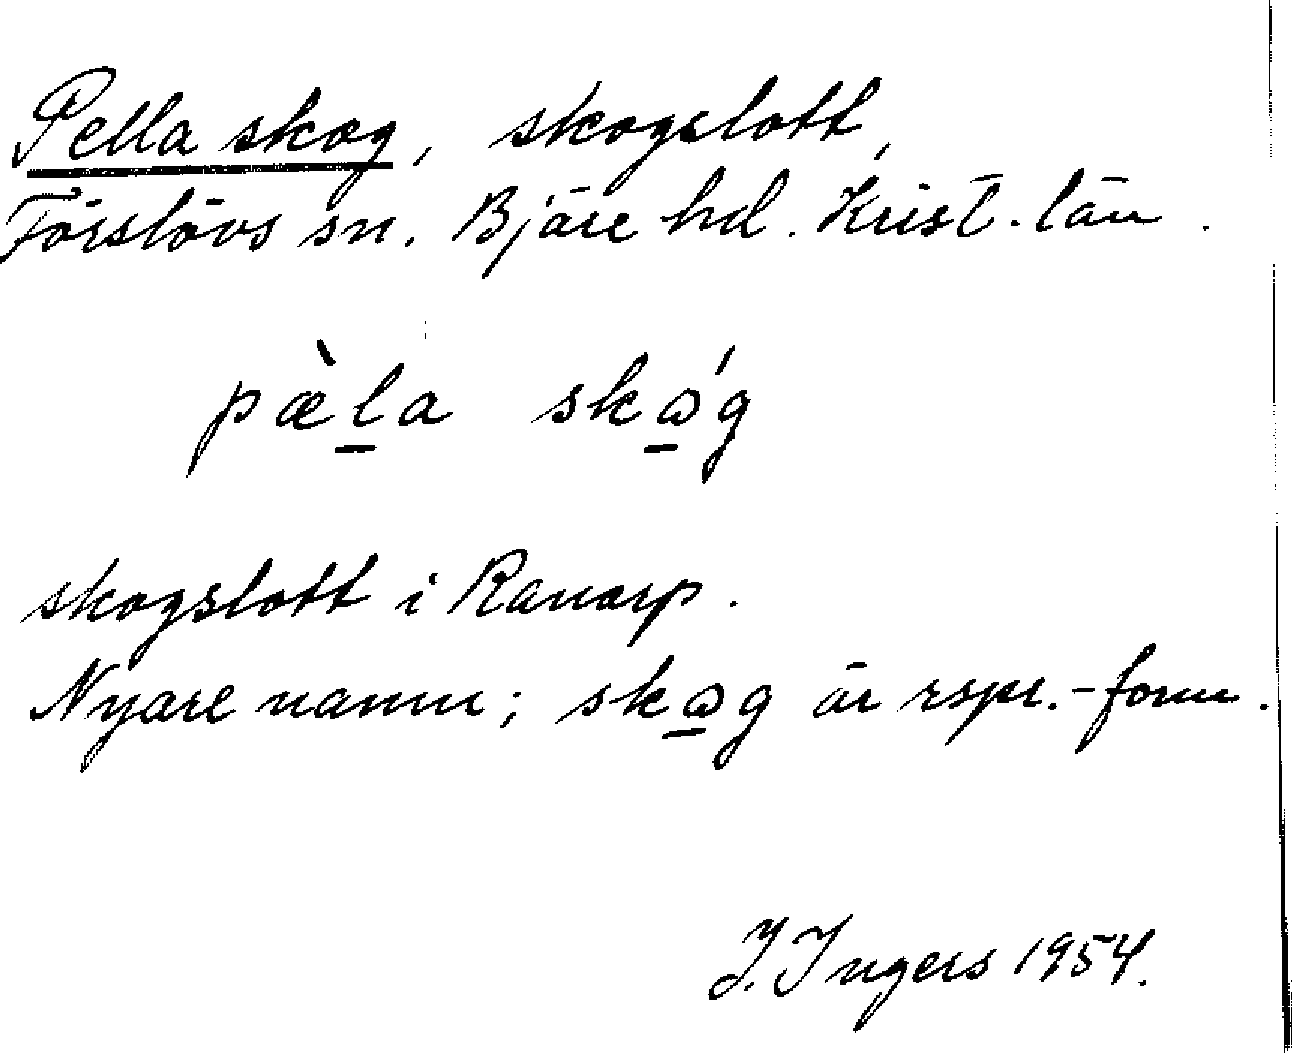 Pella skog, skogslott,
Förslövs sn. Bjäre hd. Krist. län.
pæ̀l̲a skώ̲g
skogslott i Ranarp.
Nyare namn; skω̲g är rspr.-form.
I. Ingers 1954.